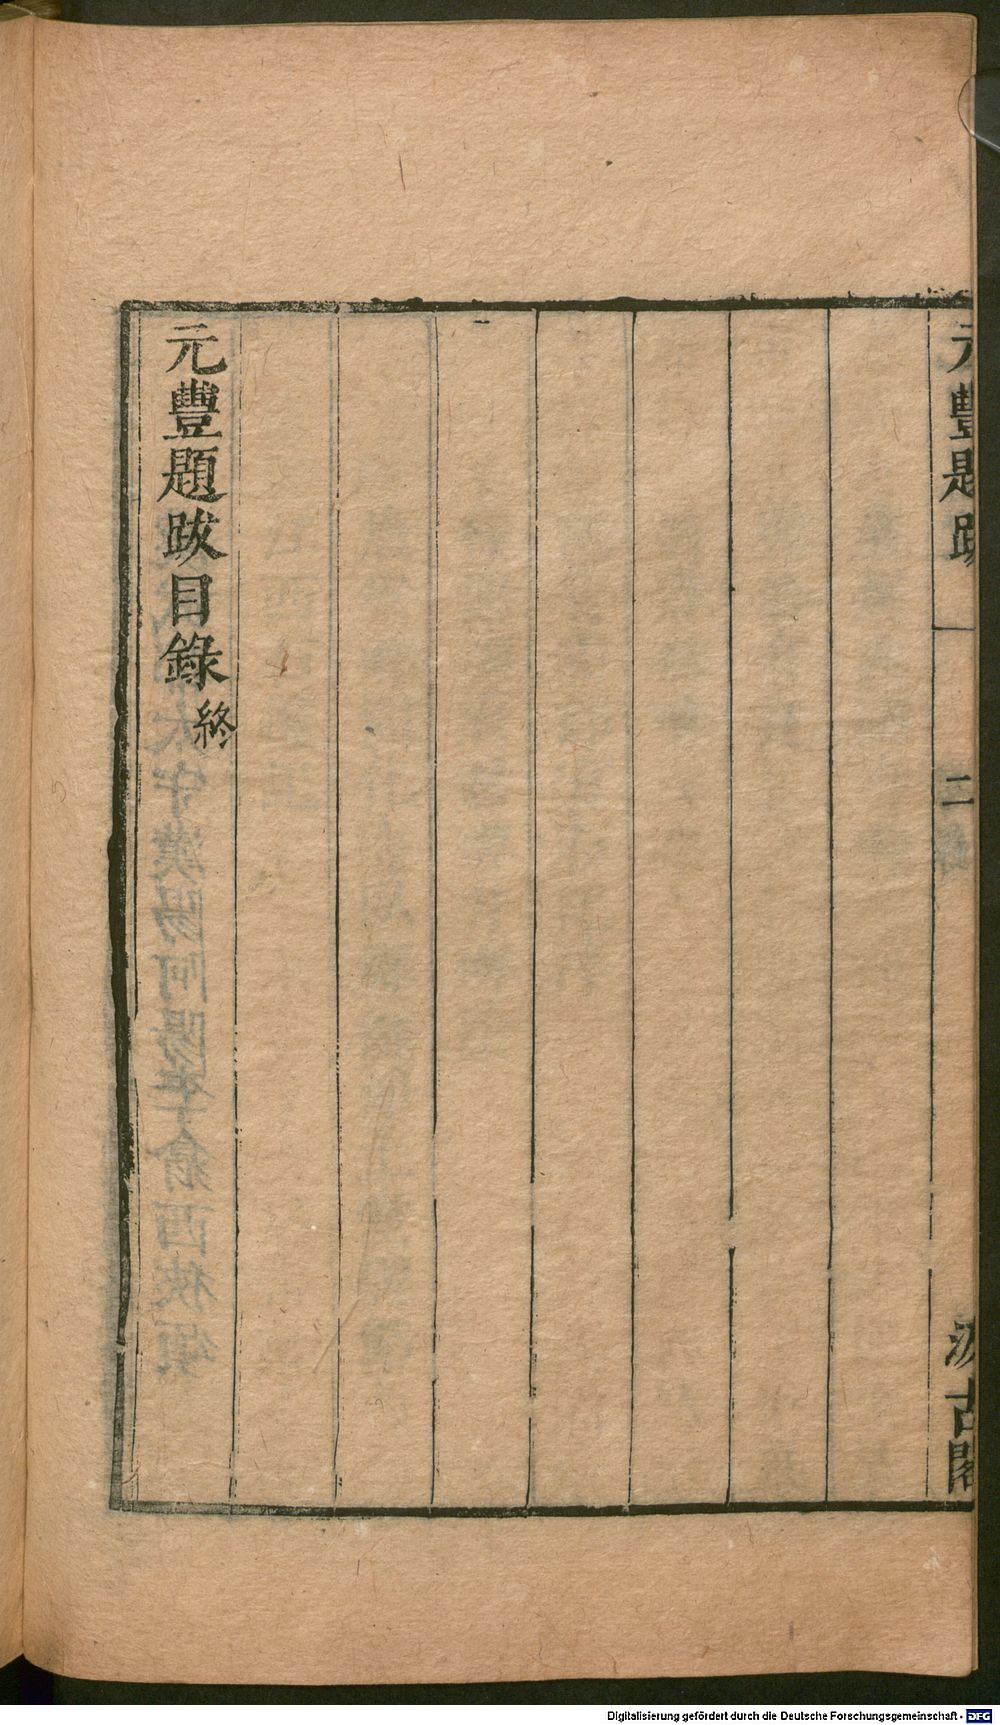 元豐題跋
二
汲古閣
元豐題跋目錄終
Digitalisierung gefördert durch die Deutsche Forschungsgemeinschaft - DFG